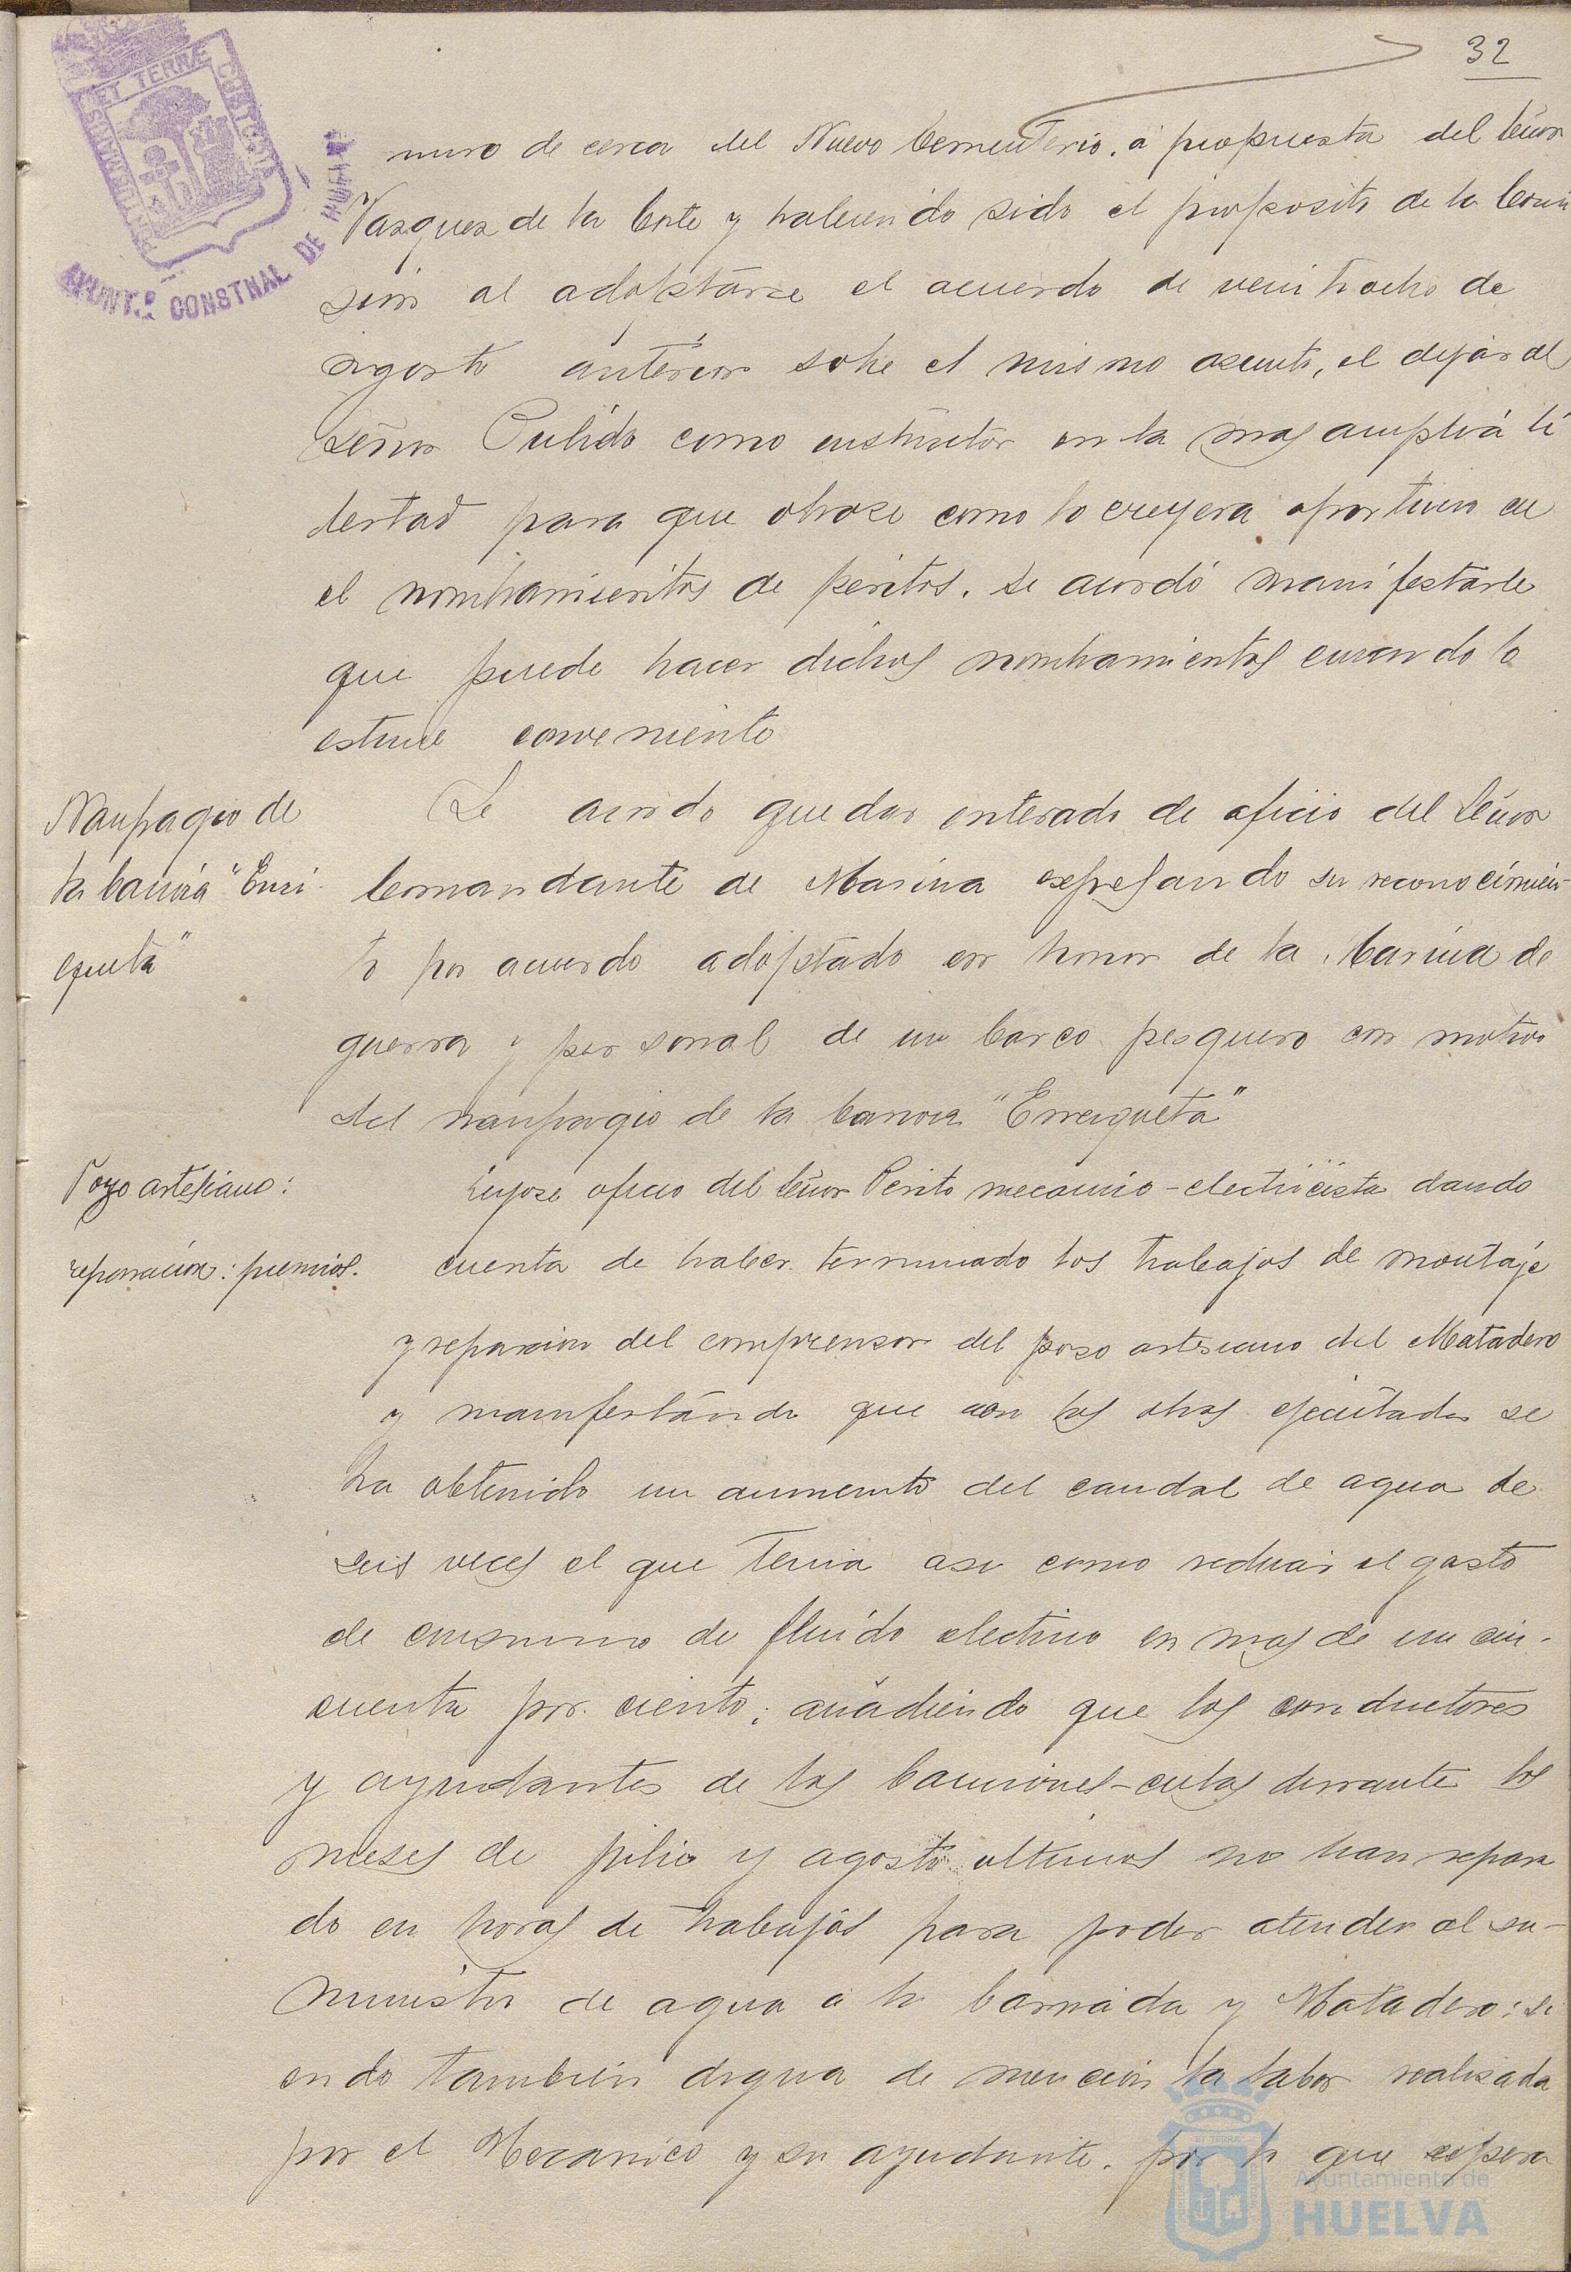 32
PORTUS MARIS ET TERRÆ CUSTODIA
AYUNT.º CONSTNAL DE HUELVA
muro de cerca del Nuevo Cementerio, á propuesta del Señor
Vazquez de la Corte y habiendo sido el proposito de la Comi
sion al adoptarse el acuerdo de veintiocho de
agosto anterior sobre el mismo asunto, el dejar al
Señor Pulido como instructor en la mas amplia li
bertad para que obrase como lo creyera oportuno en
el nombramientos de peritos, se acordó manifestarle
que puede hacer dichos nombramientos cuando lo
estime conveniente
Naufragio de
la canoa "Enri
queta"
Se acordo quedar enterado de oficio del Señor
Comandante de Marina expresando su reconocimien-
to por acuerdo adoptado en honor de la Marina de
guerra y personal de un barco pesquero con motivo
del naufragio de la canoa "Enriqueta"
Pozo artesiano:
reparación: premios.
Leyose oficio del Señor Perito mecanico-electricista dando
cuenta de haber terminado los trabajos de montaje
y reparacion del comprensor del poso artesiano del Matadero
y manifestando que con las obras ejecutadas se
ha obtenido un aumento del caudal de agua de
seis veces el que tenia asi como reducir el gasto
de consumo de fluido electrico en mas de un cin-
cuenta por ciento; añadiendo que los conductores
y ayudantes de los Camiones-cubas durante los
meses de julio y agosto ultimos no han repara
do en horas de trabajos para poder atender al su-
ministro de agua a la barriada y Matadero; si
endo tambien digna de mención la labor realizada
por el Mecanico y su ayudante, por lo que espera
Ayuntamiento de
HUELVA